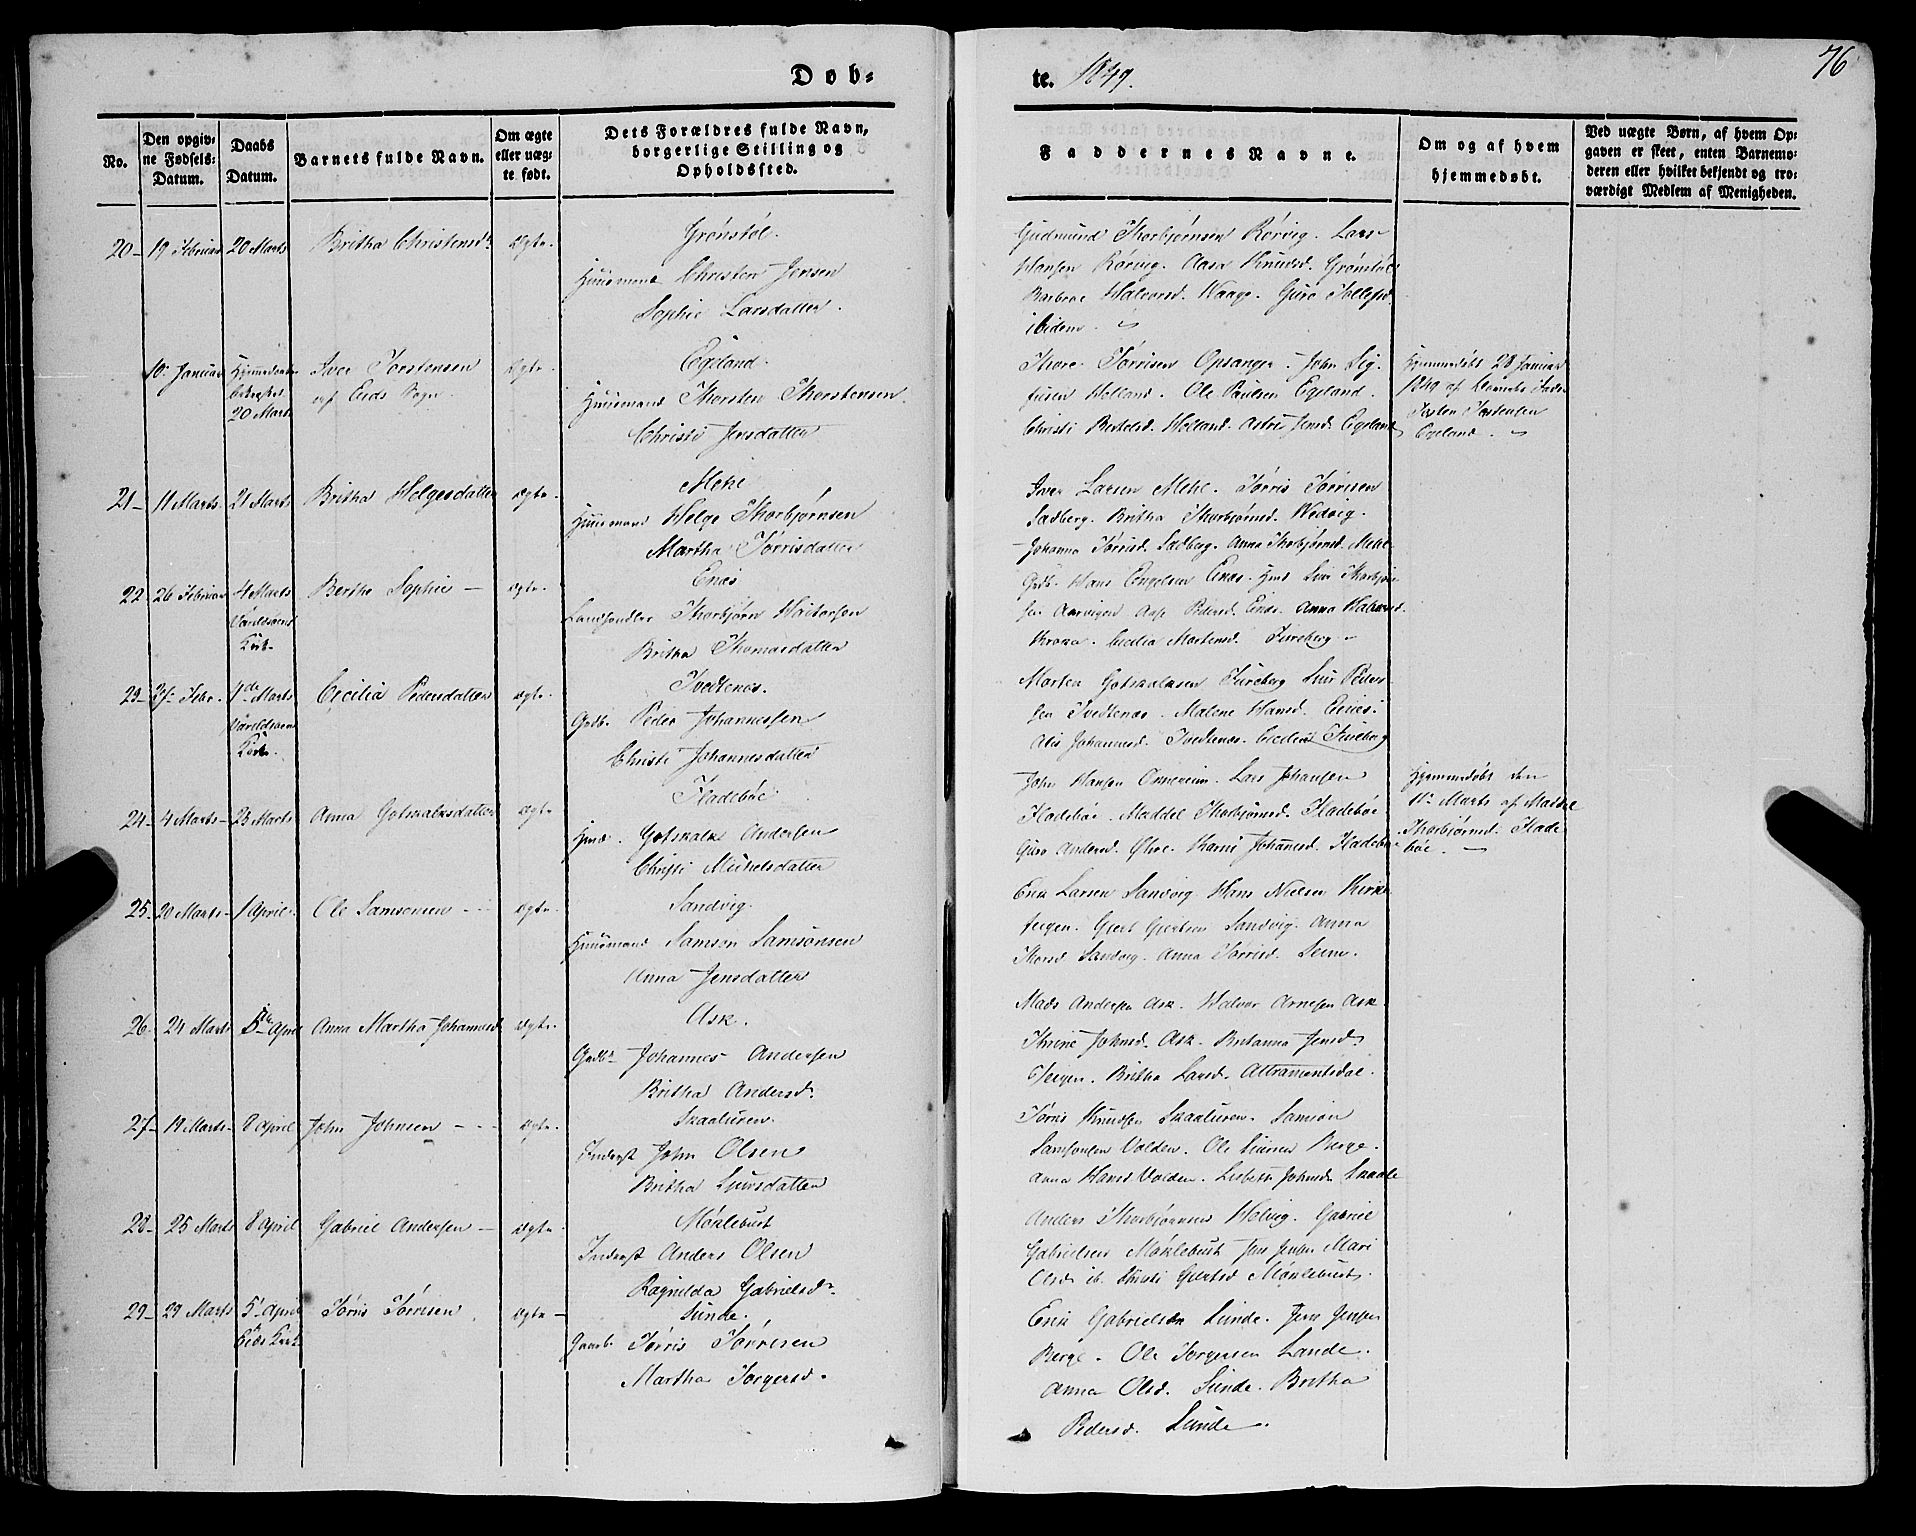 Dob-
te. 1849.
76
No.
Den opgiv-
ne Fødsels-
Datum.
Daabs
Datum.
Barnets fulde Navn.
Om ægte
eller uæg-
te født.
Dets Forældres fulde Navn,
borgerlige Stilling og
Opholdssted.
Faddernes Navne.
Om og af hvem
hjemmedøbt.
Ved uægte Børn, af hvem Op-
gaven er skeet, enten Barnemo-
deren eller hvilket bekjendt og tro-
værdigt Medlem af Menigheden.
20- 19 Februar 20 Marts Britha Christensdr ægte. Grønstøl.
Huusmand Christen Jensen
Sophie Larsdatter.
Gudmund Thorbjørnsen Rørvig. Lars
Hansen Rørvig. Aasa Knudsd. Grønstøl
Barbroe Halvorsd. Waage. Guro Tollefsd.
ibidem.
10 Januar Hjemmedøbt
20 Marts
Iver Torstensen
af Eids Sogn.
ægte. Egeland.
Huusmand Thorsten Thorstensen.
Christi Jensdatter
Thore Tørrisen Opsanger. John Sig-
fusen Holland. Ole Paulsen Egeland.
Christi Bertelsd. Helland. Astri Jensd. Egeland
Hjemmedøbt 28 Januar
1849 af Barnets Fader
Tosten Tostensen
Egeland.
21- 11 Marts. 21 Marts Britha Helgesdatter ægte. Mehl
Huusmand Helge Thorbjørnsen
Martha Tørrisdatter
Iver Larsen Mehl. Tørris Tørrisen
Sadberg. Britha Thorbjørnsd. Wedvig.
Johanna Tørrisd. Sadberg. Anna Thorbjørnsd. Mehl
22- 26 Februar 4 Marts
Varildsøens
Kirk.
Berthe Sophie - ægte. Enes
Landhandler Thorbjørn Haktorsen
Britha Thomasdatter
Gdb. Hans Engelsen Enes. Sjur Thorbjørn-
sen Aarvigen Aase Pedersd. Enes. Anna Halvorsd.
Kroka. Cecilia Mortensd. Fureberg
23- 27 Febr. 4de Marts
Varildsøens
Kirk.
Cecilia Pedersdatter ægte. Tvedtenes.
Gdb. Peder Johannessen
Christi Johannesdatter
Morten Gotskalksen Fureberg Siur Peder-
sen Tvedtenes. Malene Hansd. Enes.
Alis Johannesd. Tvedtenes. Cecilia Fureberg
24- 4 Marts- 25 Marts Anna Gotskalksdatter ægte Fladebøe
Huusm. Gotskalk Andersen
Christi Michelsdatter
John Hansen Omvikim. Lars Johansen
Fladebøe. Maddel Thorbjørnsd. Fladebøe
Guro Andersd. Ølve. Karni Johannsd. Fladebøe
Hjemmedøbt den
11te Marts af Maddel
Thorbjørnsd. Flade-
bøe.
25- 20 Marts- 1 April. Ole Samsonsen - ægte. Sandvig.
Huusmand Samson Samsonsen
Anna Jensdatter
Erik Larsen Sandvig. Hans Nielsen Kirk-
teigen. Gjert Gjertsen Sandvig. Anna
Thorsd. Sandvig. Anna Tørrisd. Seim.
26- 24 Marts 5te April Anna Martha Johannesd. ægte. Ask.
Gdbr. Johannes Andersen
Britha Andersd.
Mads Andersen Ask. Halvor Arnesen Ask.
Thrine Johnsd. Ask. Britanna Jensd.
Teigen. Britha Larsd. Attramentsdal.
27- 19 Marts- 8 April John Johnsen - - ægte. Skaaluren.
Inderst John Olsen
Britha Sjursdatter
Tørris Knudsen Skaaluren. Samson
Samsonsen Valden. Ole Siursen Berge.
Anna Hansd Valden. Lisbeth Johnsd. Skaale
28- 25 Marts 8 April Gabriel Andersen - ægte. Møklebust
Inderst Anders Olsen
Ragnilda Gabrielsdr
Anders Thorbjørnsen Helvig. Gabriel
Gabrielsen Møklebust Jens Jensen Mari
Olsd. ib. Christi Gjertsd Møklebust.
29- 29 Marts 5te April
Eids Kirk
Tørris Tørrisen ægte - Sunde.
Gaardb. Tørris Tørrisen
Martha Torgersd.
Erik Gabrielsen Sunde. Jens Jensen
Berge. Ole Torgersen Lande.
Anna Olsd. Sunde. Britha
Pedersd. Sunde.